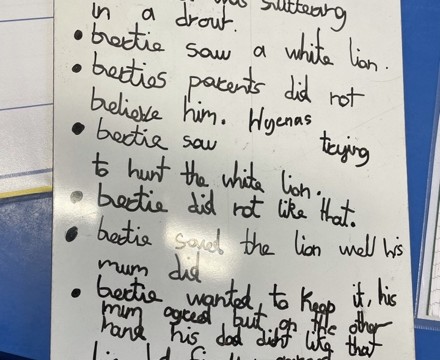 was suttering
in a drout.
• bertie saw a white lion.
• berties parents did not
believe him. Hyenas
• bertie saw trying
to hurt the white lion.
• bertie did not like that.
• bertie saved the lion well his
mum did
• bertie wanted to keep it, his
mum agreed but on the other
hand his dad didt like that